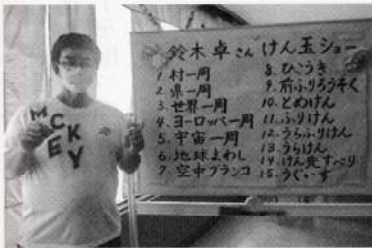 鈴木 卓さん けん玉ショー
1. 村一周
2. 県一周
3. 世界一周
4. ヨーロッパ一周
5. 宇宙一周
6. 地球まわし
7. 空中ブランコ
8. ひこうき
9. 前ふりろうそく
10. とめけん
11. ふりけん
12. うらふりけん
13. うらけん
14. けん先すべり
15. うぐいす
MCKEY